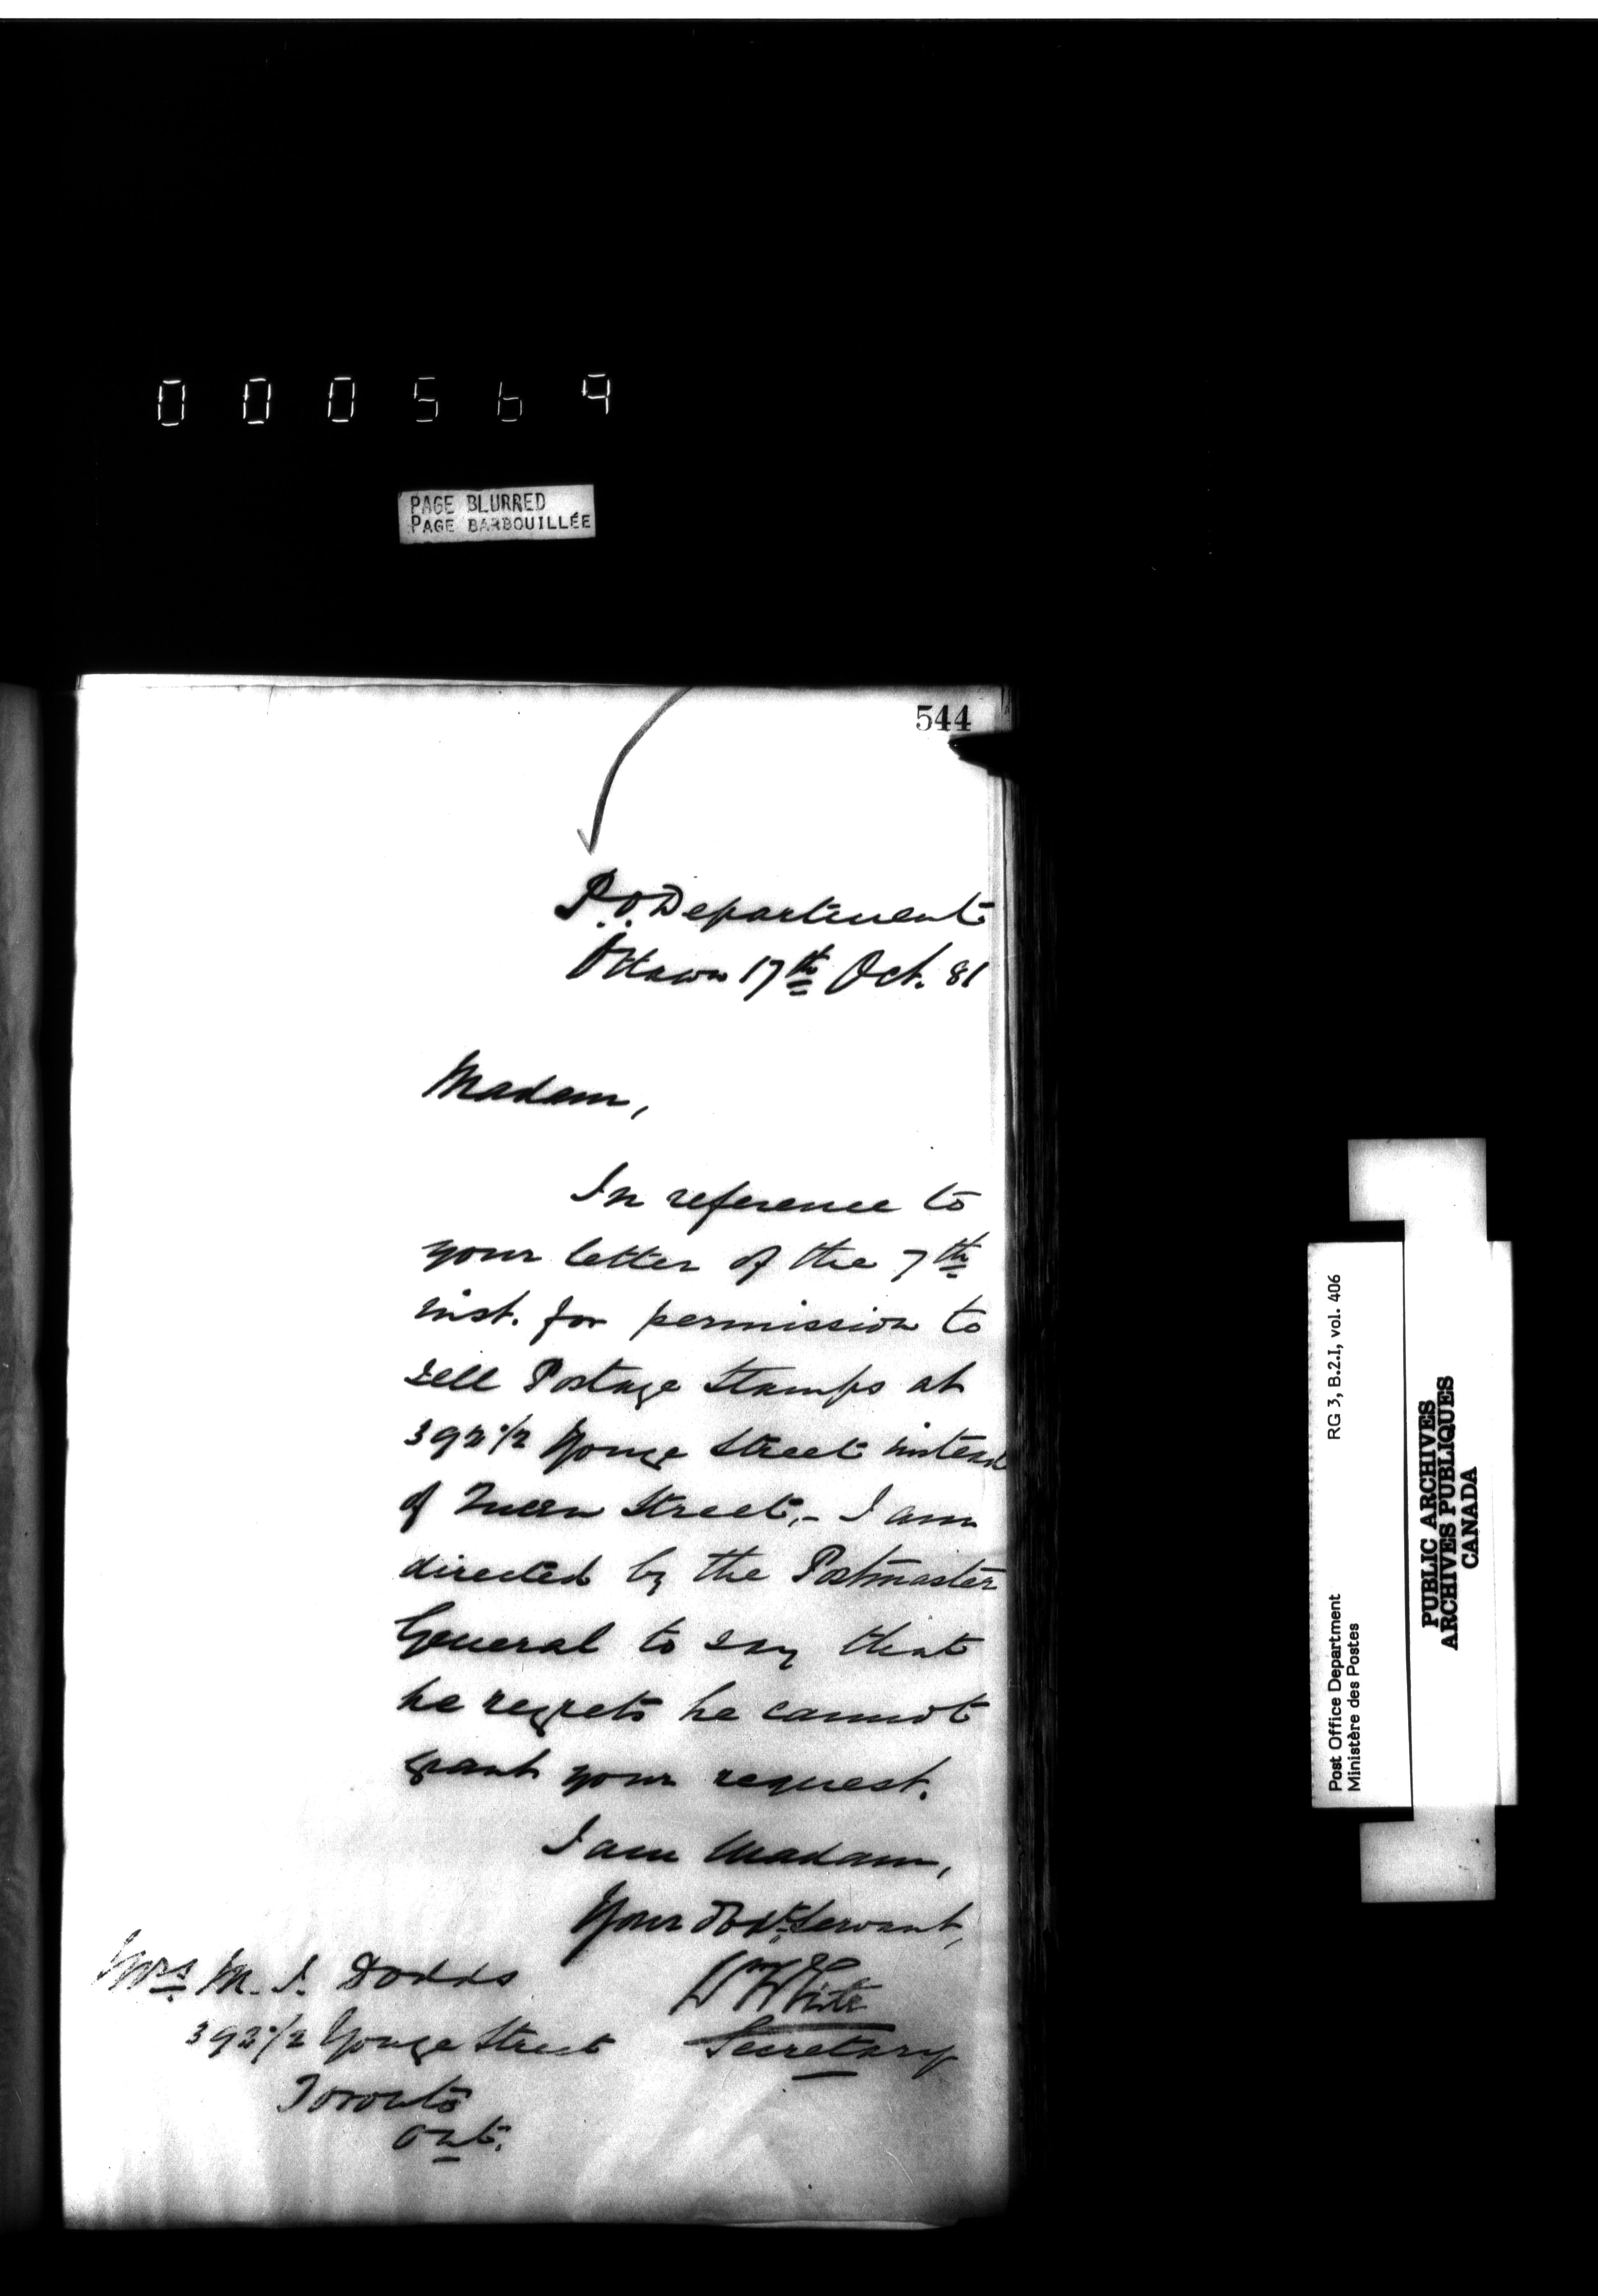 000569
PAGE BLURRED
PAGE BARBOUILLÉE
544
P.O. Department
Ottawa 17th Oct. 81
Madam,
In reference to
your letter of the 7th
inst. for permission to
sell Postage Stamps at
392 1/2 Yonge Street instead
of Queen Street,- I am
directed by the Postmaster
General to say that
he regrets he cannot
grant your request.
I am Madam,
Your Obdt. Servant,
Wm White
Secretary
Mrs. M. J. Dodds
392 1/2 Yonge Street
Toronto
Ont.
Post Office Department RG 3, B.2.I, vol. 406
Ministère des Postes
PUBLIC ARCHIVES
ARCHIVES PUBLIQUES
CANADA